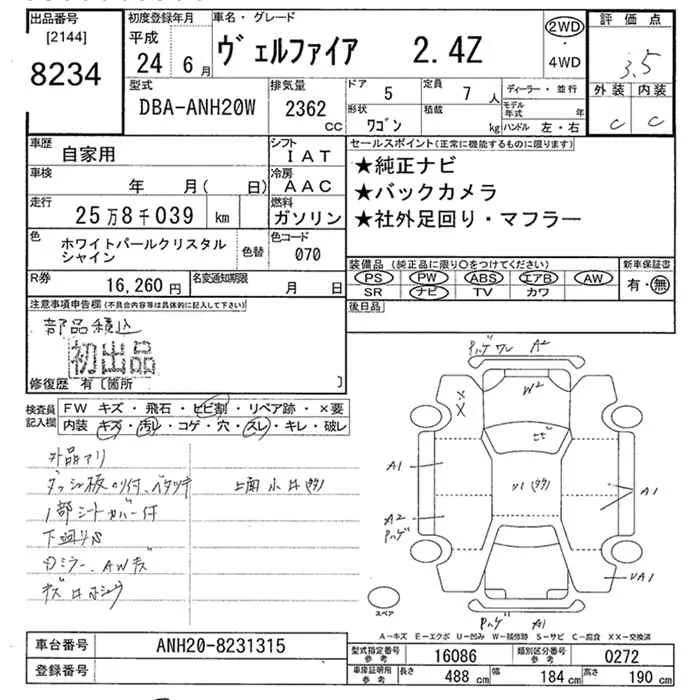 出品番号 初度登録年月 車名・グレード 評価点
[2144] 平成
8234 24 6月 ヴェルファイア 2.4Z 2WD・4WD 3.5
型式 排気量 ドア 定員 ディーラー・並行 外装 内装
DBA-ANH20W 2362 cc 5 7人 モデル年式 年 C C
形状 ワゴン 積載 kg ハンドル 左・右
車歴 自家用 シフト IAT セールスポイント(正常に機能するものに限ります)
車検 年 月( 日) 冷房 AAC ★純正ナビ
★バックカメラ
走行 25万8千039 km 燃料 ガソリン ★社外足回り・マフラー
色 ホワイトパールクリスタルシャイン 色替 色コード 070
装備品(純正品に限り○をつけてください) 新車保証書
PS PW ABS エアB AW 有・無
SR ナビ TV カワ
R券 16,260円 名変通知期限 月 日 後日品
注意事項申告欄(不具合内容等は具体的に記入して下さい)
部品積込
初出品
修復歴 有〔箇所 〕
検査員記入欄 FW キズ・飛石・ヒビ割・リペア跡・×要
内装 キズ・汚レ・コゲ・穴・スレ・キレ・破レ
外品アリ
1部シートカバー付
ドミラー、AWキズ
ハゲ ワレ A2
XX W2
ヒビ
A1 A1
A2
ハゲ
UA1
スペア ハゲ A1
A-キズ E-エクボ U-凹み W-補修跡 S-サビ C-腐食 XX-交換済
車台番号 ANH20-8231315
型式指定番号 参考 16086 類別区分番号 参考 0272
登録番号
車庫証明用 参考 長さ 488 cm 幅 184 cm 高さ 190 cm